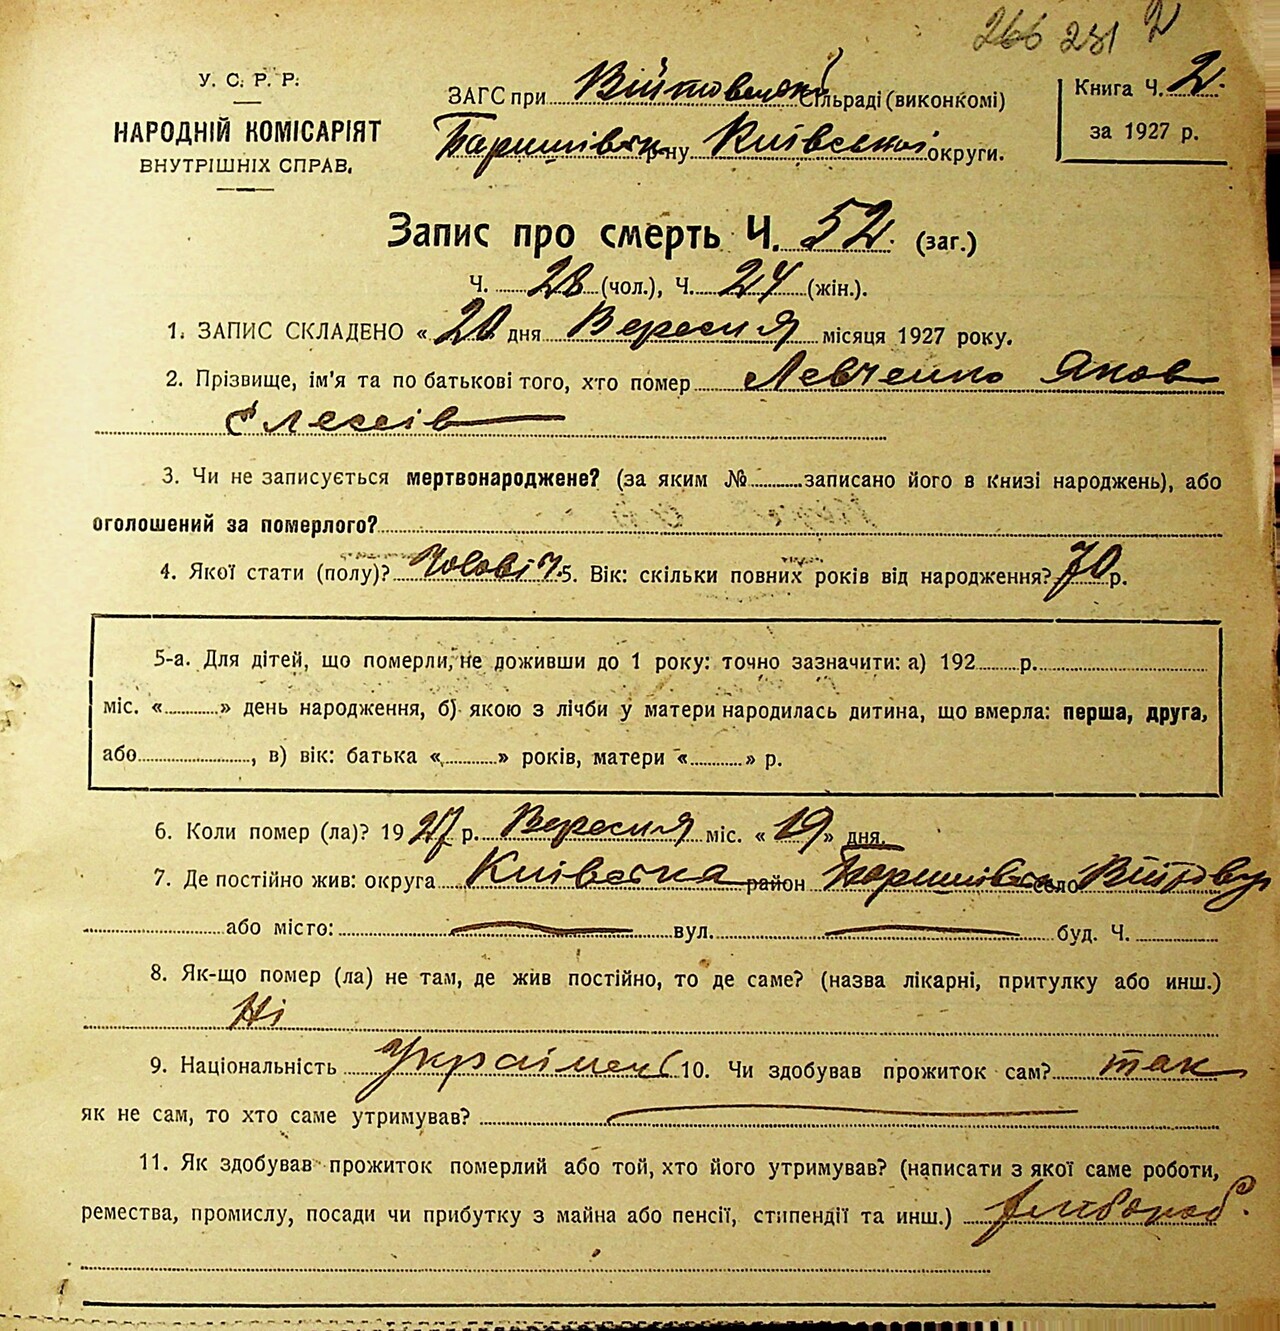 266 231 2
У. С. Р. Р.
НАРОДНІЙ КОМІСАРІЯТ
ВНУТРІШНІХ СПРАВ.
ЗАГС при Війтовецькій Сільраді (виконкомі)
Баришівськ р-ну Київської округи.
Книга Ч. 2.
за 1927 р.
Запис про смерть Ч. 52. (заг.)
Ч. 28 (чол.), Ч. 24 (жін.).
1. ЗАПИС СКЛАДЕНО « 20 дня Вересня місяця 1927 року.
2. Прізвище, ім'я та по батькові того, хто помер Левченко Яков
3. Чи не записується мертвонароджене? (за яким № записано його в книзі народжень), або
оголошений за померлого?
4. Якої стати (полу)? Чоловіч. 5. Вік: скільки повних років від народження? 70 р.
5-а. Для дітей, що померли, не доживши до 1 року: точно зазначити: а) 192 р.
міс. « » день народження, б) якою з лічби у матери народилась дитина, що вмерла: перша, друга,
або , в) вік: батька « » років, матери « » р.
6. Коли помер (ла)? 1927 р. Вересня міс. « 19 » дня.
7. Де постійно жив: округа Київська район Баришівськ село
або місто: вул. буд. Ч.
8. Як-що помер (ла) не там, де жив постійно, то де саме? (назва лікарні, притулку або инш.)
Ні
9. Національність Украінець 10. Чи здобував прожиток сам? так
як не сам, то хто саме утримував?
11. Як здобував прожиток померлий або той, хто його утримував? (написати з якої саме роботи,
ремества, промислу, посади чи прибутку з майна або пенсії, стипендії та инш.) хлібороб.